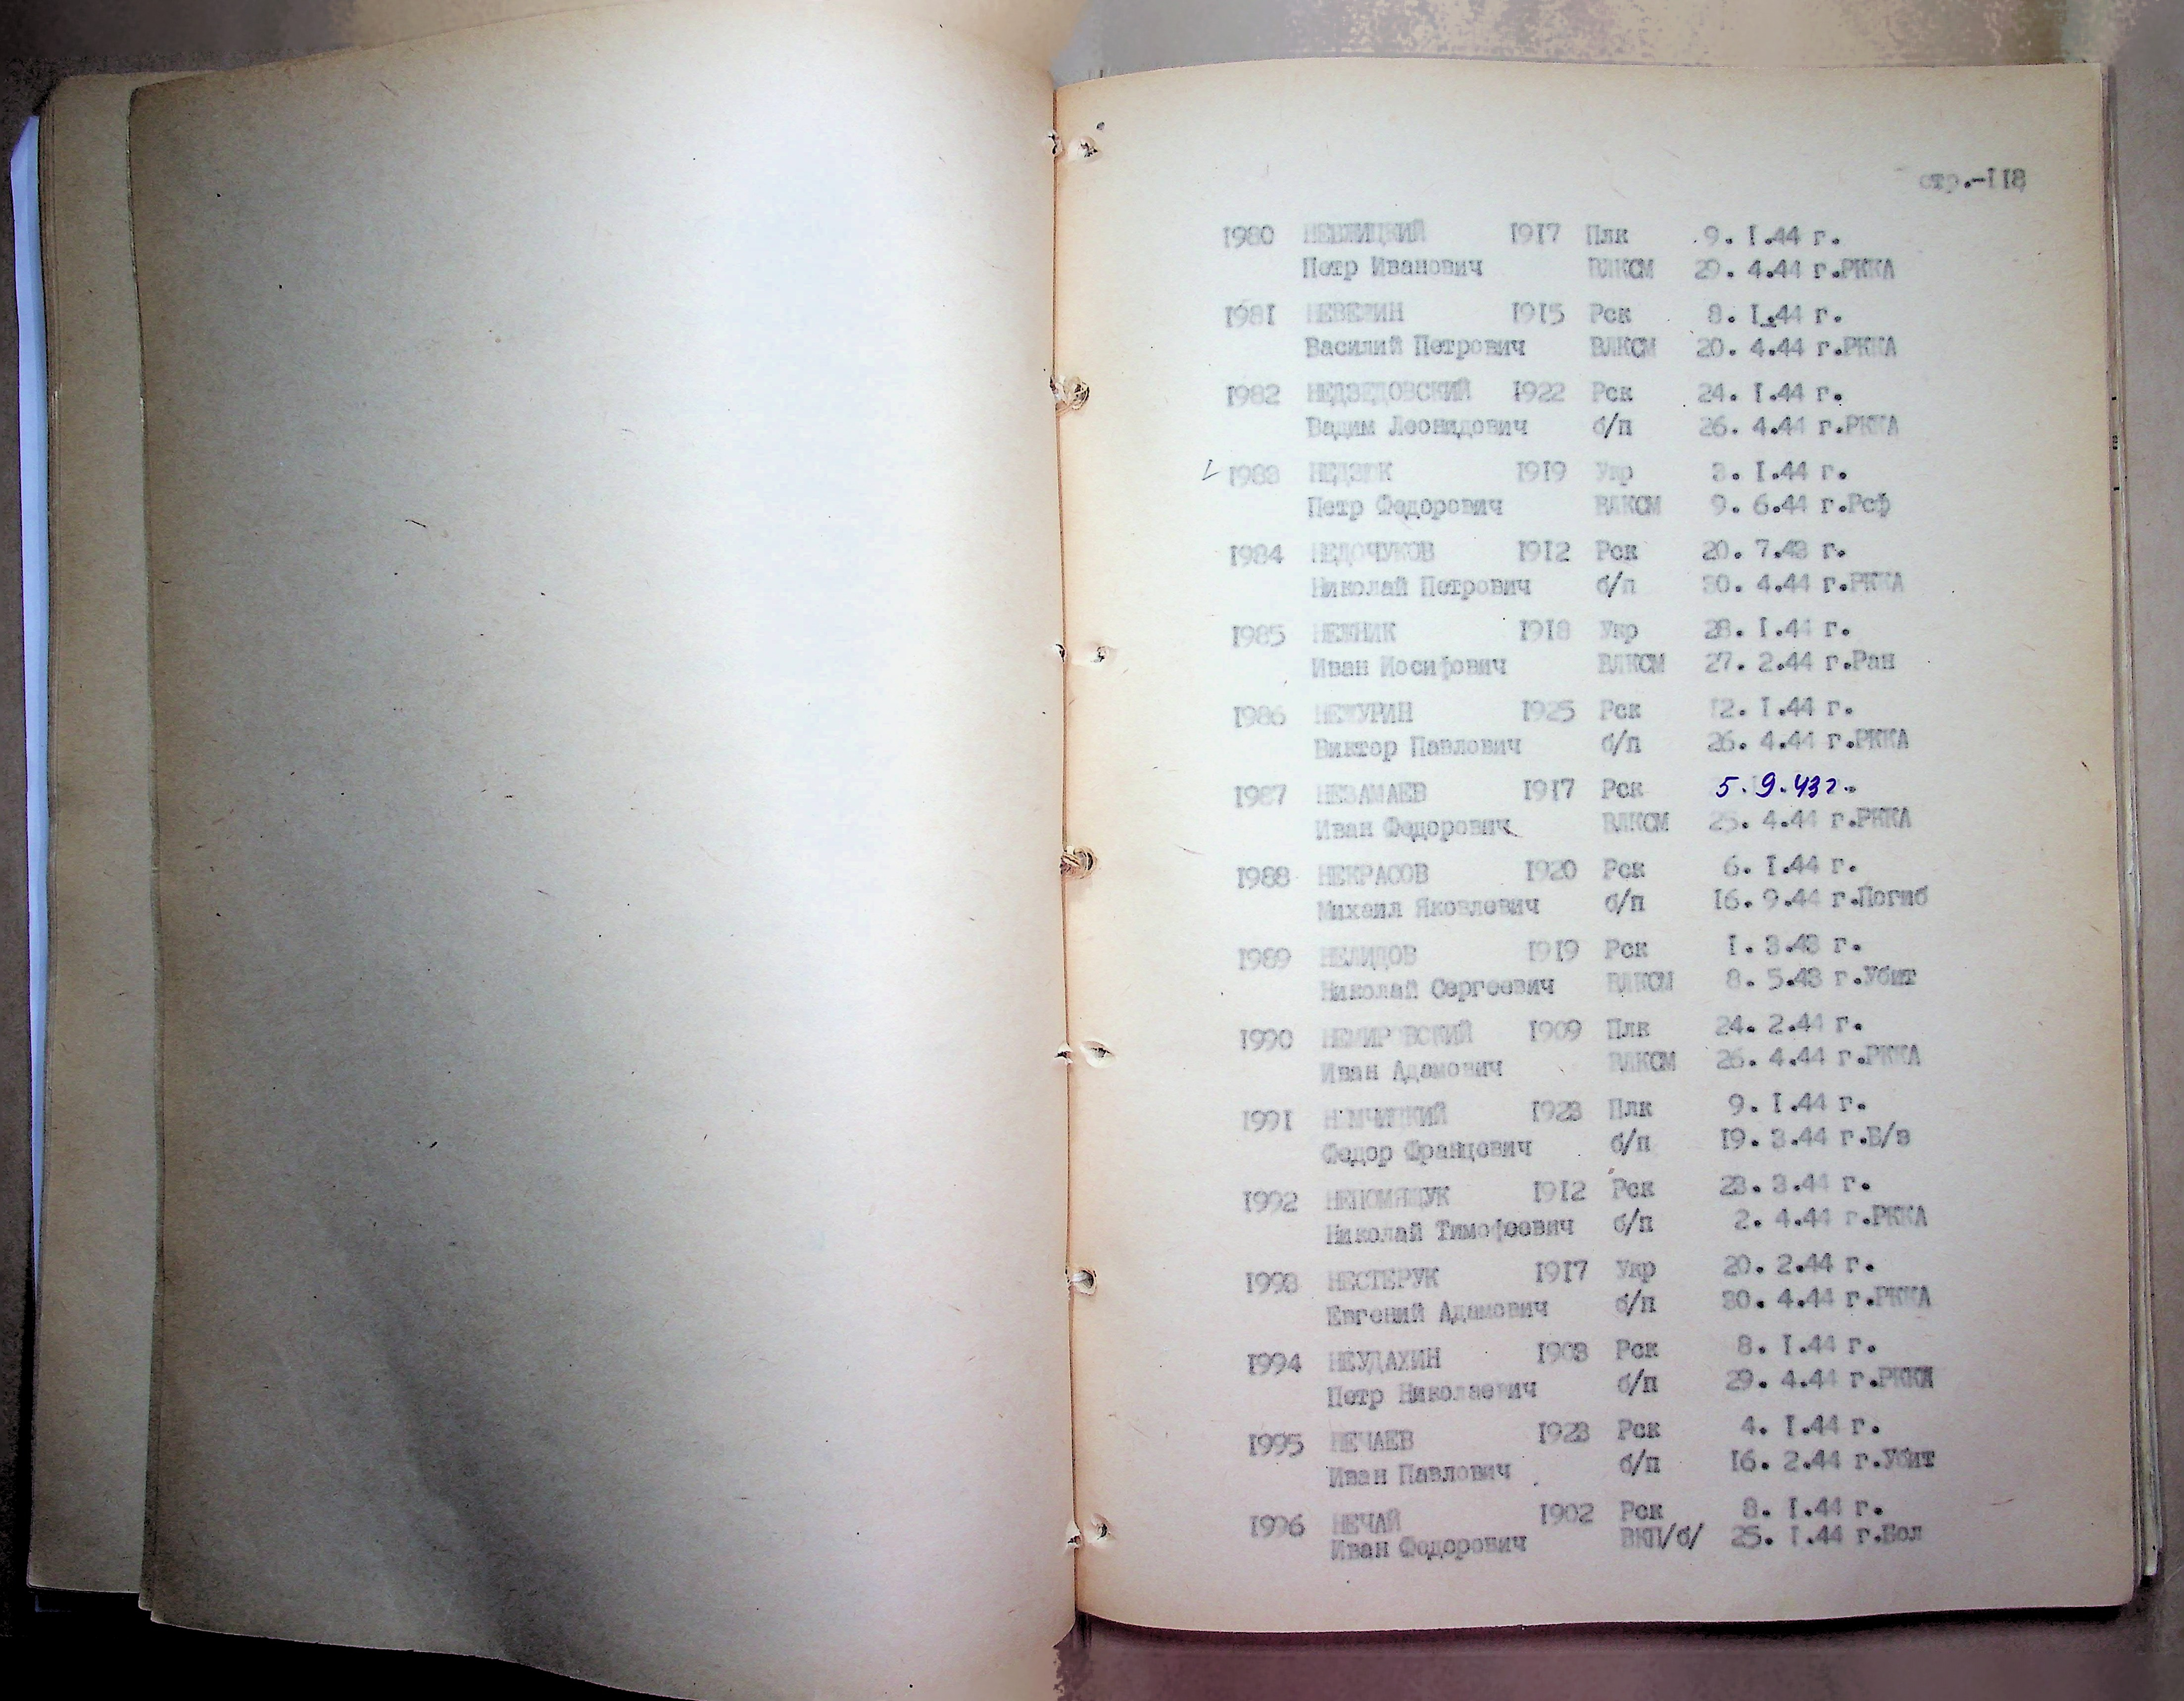 стр.-118
1980 НЕВЖИЦКИЙ 1917 Плк 9. I.44 г.
Петр Иванович ВЛКСМ 29. 4.44 г.РККА
1981 НЕВЕЖИН 1915 Рск 8. I.44 г.
Василий Петрович ВЛКСМ 20. 4.44 г.РККА
1982 НЕДЗЕДОВСКИЙ 1922 Рск 24. I.44 г.
Вадим Леонидович б/п 26. 4.44 г.РККА
1983 НЕДЗЮК 1919 Укр 3. I.44 г.
Петр Федорович ВЛКСМ 9. 6.44 г.Рсф
1984 НЕДОЧУКОВ 1912 Рск 20. 7.43 г.
Николай Петрович б/п 30. 4.44 г.РККА
1985 НЕЖНИК 1918 Укр 28. I.44 г.
Иван Иосифович ВЛКСМ 27. 2.44 г.Ран
1986 НЕЖУРИН 1925 Рск 12. I.44 г.
Виктор Павлович б/п 26. 4.44 г.РККА
1987 НЕЗАМАЕВ 1917 Рск 5.9.43г.
Иван Федорович ВЛКСМ 25. 4.44 г.РККА
1988 НЕКРАСОВ 1920 Рск 6. I.44 г.
Михаил Яковлевич б/п 16. 9.44 г.Погиб
1989 НЕЛИДОВ 1919 Рск I. 3.43 г.
Николай Сергеевич ВЛКСМ 8. 5.43 г.Убит
1990 НЕМИРОВСКИЙ 1909 Плк 24. 2.44 г.
Иван Адамович ВЛКСМ 26. 4.44 г.РККА
1991 НЕМЧИЦКИЙ 1923 Плк 9. I.44 г.
Федор Францович б/п 19. 3.44 г.Б/в
1992 НЕПОМЯЩУК 1912 Рск 23. 3.44 г.
Николай Тимофеевич б/п 2. 4.44 г.РККА
1993 НЕСТЕРУК 1917 Укр 20. 2.44 г.
Евгений Адамович б/п 30. 4.44 г.РККА
1994 НЕУДАХИН 1903 Рск 8. I.44 г.
Петр Николаевич б/п 29. 4.44 г.РККА
1995 НЕЧАЕВ 1923 Рск 4. I.44 г.
Иван Павлович б/п 16. 2.44 г.Убит
1996 НЕЧАЙ 1902 Рск 8. I.44 г.
Иван Федорович ВКП/б/ 25. I.44 г.Бол